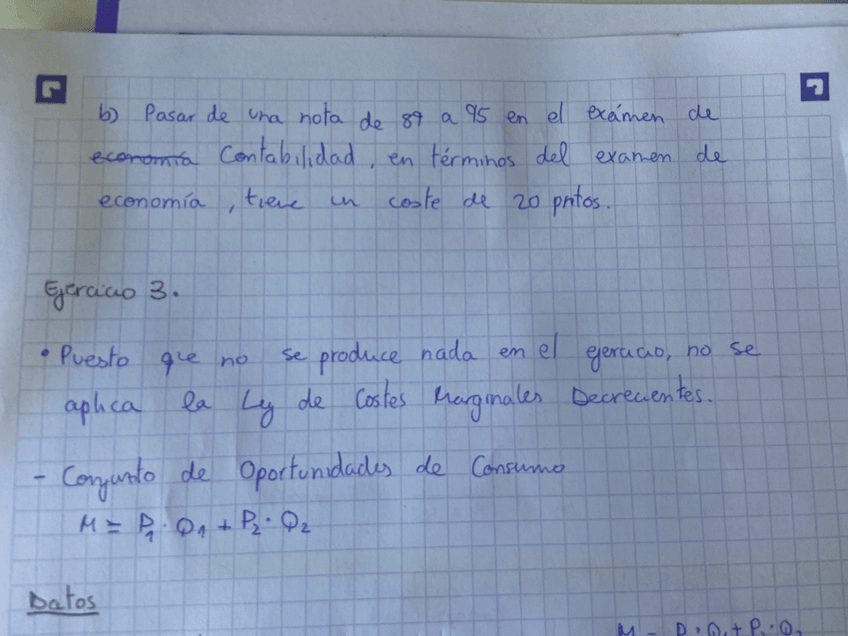 b) Pasar de una nota de 87 a 95 en el exámen de
economía Contabilidad, en términos del examen de
economía, tiene un coste de 20 pntos.
Ejercicio 3.
• Puesto que no se produce nada en el ejercicio, no se
aplica la Ley de Costes Marginales Decrecientes.
- Conjunto de Oportunidades de Consumo
M = P₁ · Q₁ + P₂ · Q₂
Datos